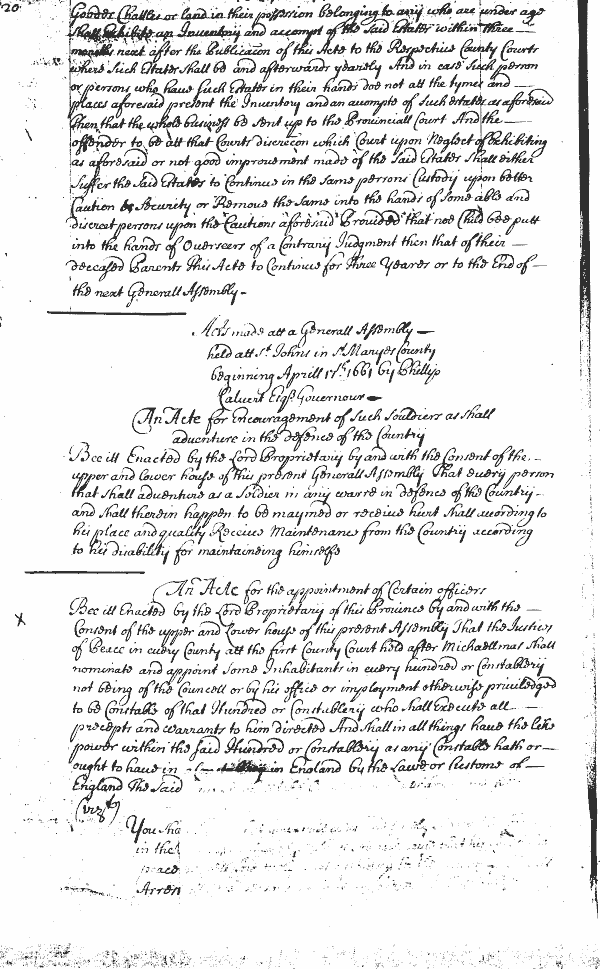 20
Goodes Chatles or land in their possession belonging to any who are under age
Shall Exhibite an Inventory and accompt of the Said Estates within three
months next after the Publicacon of this Acte to the Respective County Courts
where Such Estates shall be and afterwards yearely And in case Such person
or persons who have Such Estates in their hands doe not all the tymes and
places aforesaid present the Inventory and an accompte of Such estates as aforesaid
then that the whole business be sent up to the Provinciall Court And the
offender to be att that Courts discrecon which Court upon Neglect of Exhibiting
as aforesaid or not good improvement made of the Said Estates Shall either
Suffer the said Estates to Continue in the same persons Custody upon better
Caution or Security or Remove the Same into the hands of Some able and
discreet persons upon the Cautions aforesaid Provided that noe Child bee putt
into the hands of Overseers of a Contrary Judgment then that of their
deceased Parents This Acte to Continue for three Yeares or to the End of
the next Generall Assembly
Acts made att a Generall Assembly
held att St Johns in St Maryes County
beginning Aprill 17th 1661 by Phillip
Calvert Esqr Governour
An Acte for Encouragement of Such Souldiers as shall
adventure in the defence of the Country
Bee itt Enacted by the Lord Proprietary by and with the Consent of the
upper and lower house of this present Generall Assembly That every person
that shall adventure as a Soldier in any warre in defence of the Country
and shall therein happen to be maymed or receive hurt Shall according to
his place and quality Receive Maintenance from the Country according
to his disability for maintaineing himselfe
An Acte for the appointment of Certain officers
x Bee itt Enacted by the Lord Proprietary of this Province by and with the
Consent of the upper and Lower house of this present Assembly That the Justices
of Peace in every County att the first County Court held after Michaellmas Shall
nominate and appoint Some Inhabitants in every hundred or Constablery
not being of the Councell or by his office or imployment otherwise priviledged
to be Constable of that Hundred or Constublery who shall Execute all
precepts and warrants to him directed And Shall in all things have the like
power within the said Hundred or Constablery as any Constable hath or
ought to have in in England by the Lawe or Custome of
England The Said
(vizt)
You Sha
in the
peace
Arren